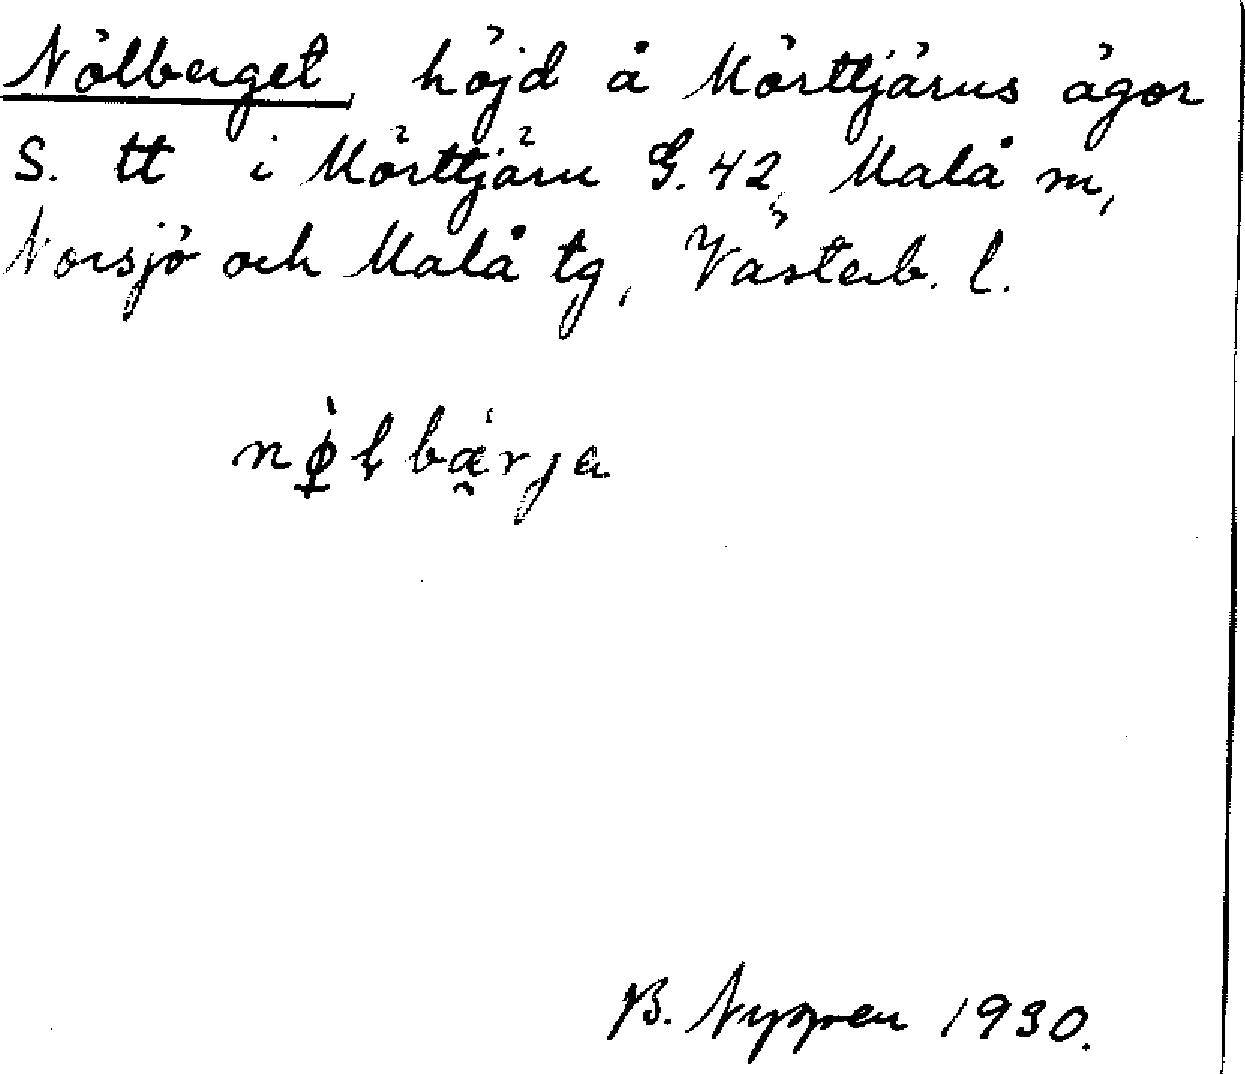 Nölberget, höjd å Mörttjärns ägor
S. tt i Mörttjärn G. 42, Malå sn,
Norsjö och Malå tg, Västerb. l.
B. Nygren 1930.